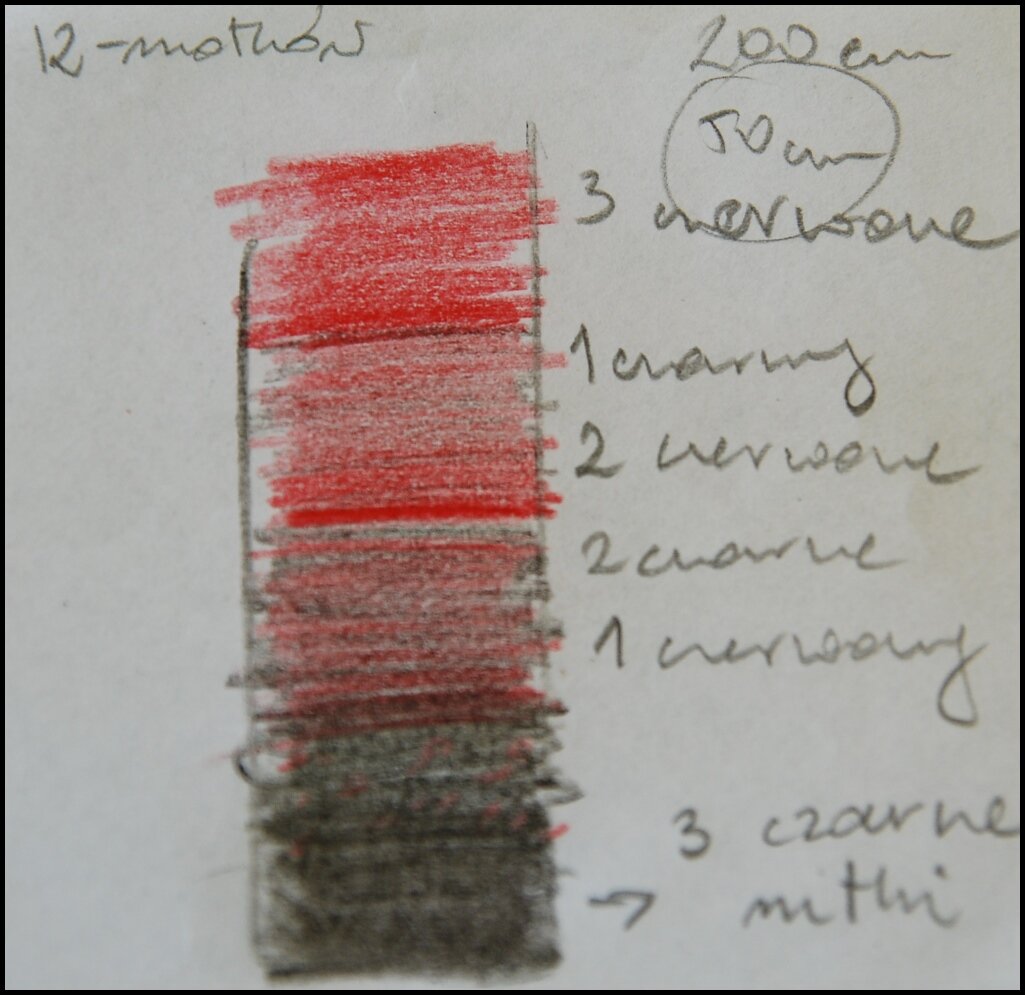 12-motków
200 cm
50 cm
3 czerwone
1 czarny
2 czerwone
2 czarne
1 czerwony
3 czarne
→ nitki